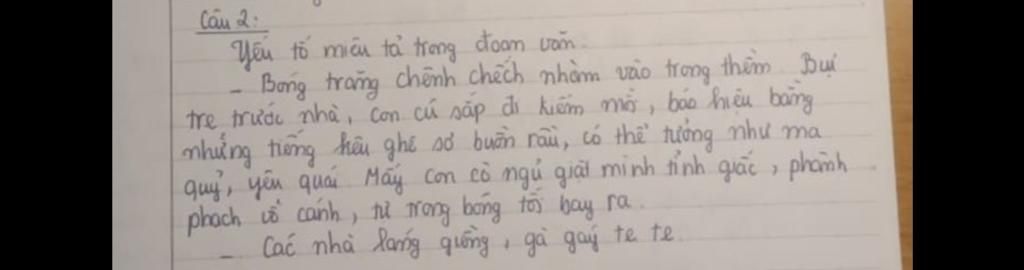 Câu 2:
Yếu tố miêu tả trong đoạn văn.
- Bóng trăng chênh chếch nhòm vào trong thềm. Bụi
tre trước nhà, con cú sắp đi kiếm mồ, báo hiệu bằng
những tiếng kêu ghê sợ buồn rầu, có thể tưởng như ma
quỷ, yêu quái. Mấy con cò ngủ giật mình tỉnh giấc, phành
phạch vỗ cánh, từ trong bóng tối bay ra.
- Các nhà láng giềng, gà gáy te te.